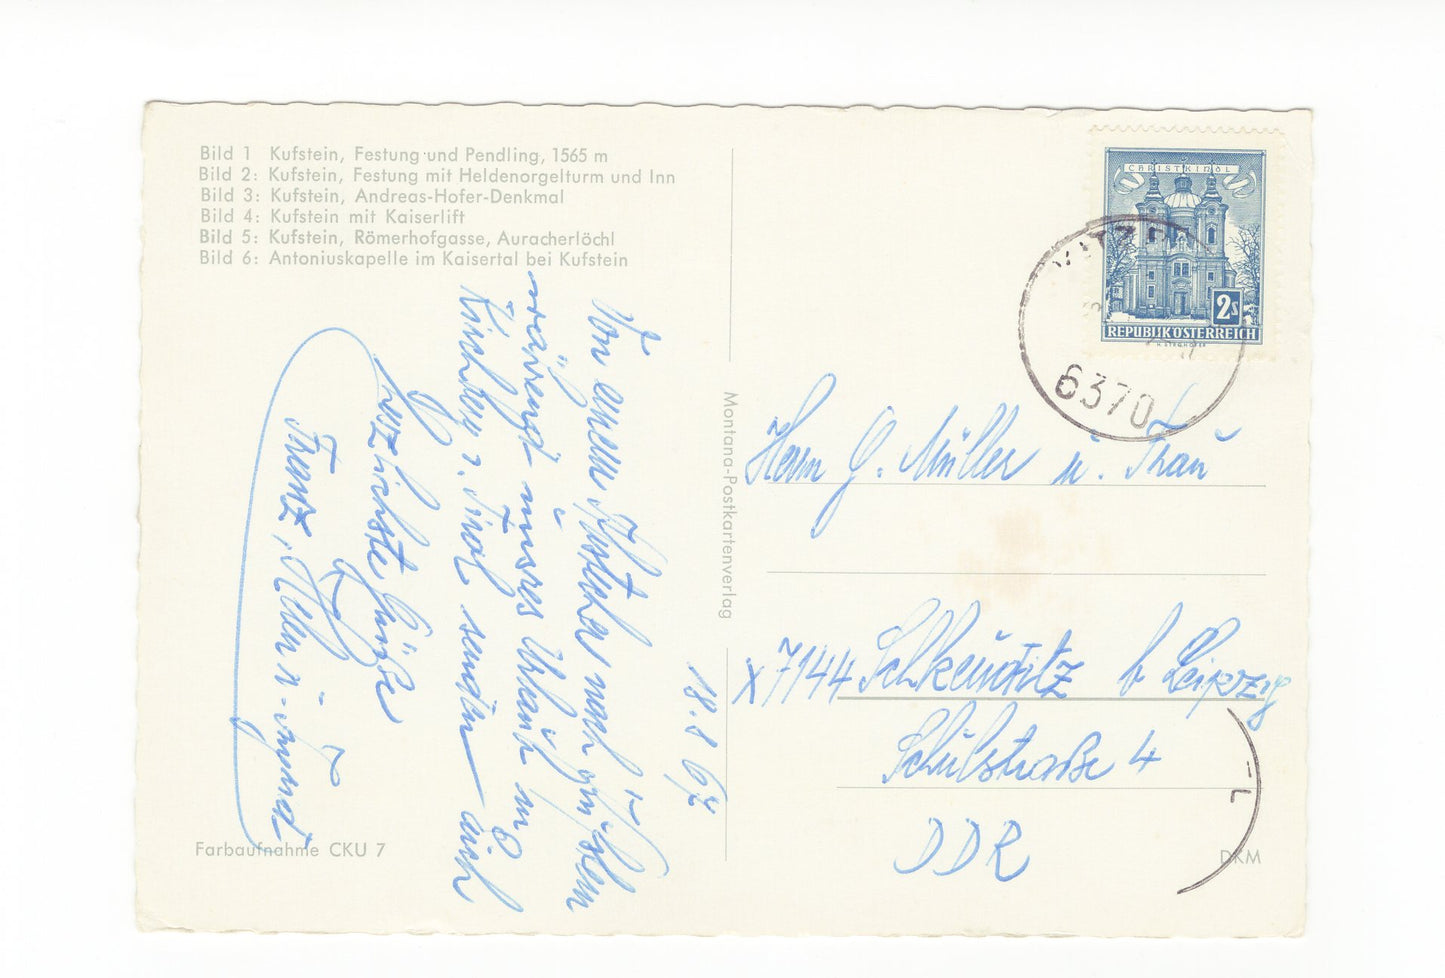 Bild 1 Kufstein, Festung und Pendling, 1565 m
Bild 2: Kufstein, Festung mit Heldenorgelturm und Inn
Bild 3: Kufstein, Andreas-Hofer-Denkmal
Bild 4: Kufstein mit Kaiserlift
Bild 5: Kufstein, Römerhofgasse, Auracherlöchl
Bild 6: Antoniuskapelle im Kaisertal bei Kufstein
18.8.67
Von einem Abstecher nach Kufstein
während unsres Urlaub in
Kirchberg i. Tirol senden auch
herzlichste Grüße
Frantz, Ellen u.
Farbaufnahme CKU 7
Montana-Postkartenverlag
CHRISTKINDL
2S
REPUBLIK ÖSTERREICH
6370
Herrn G. Müller u. Frau
x 7144 Schkeuditz b Leipzig
Schulstraße 4
DDR
DKM